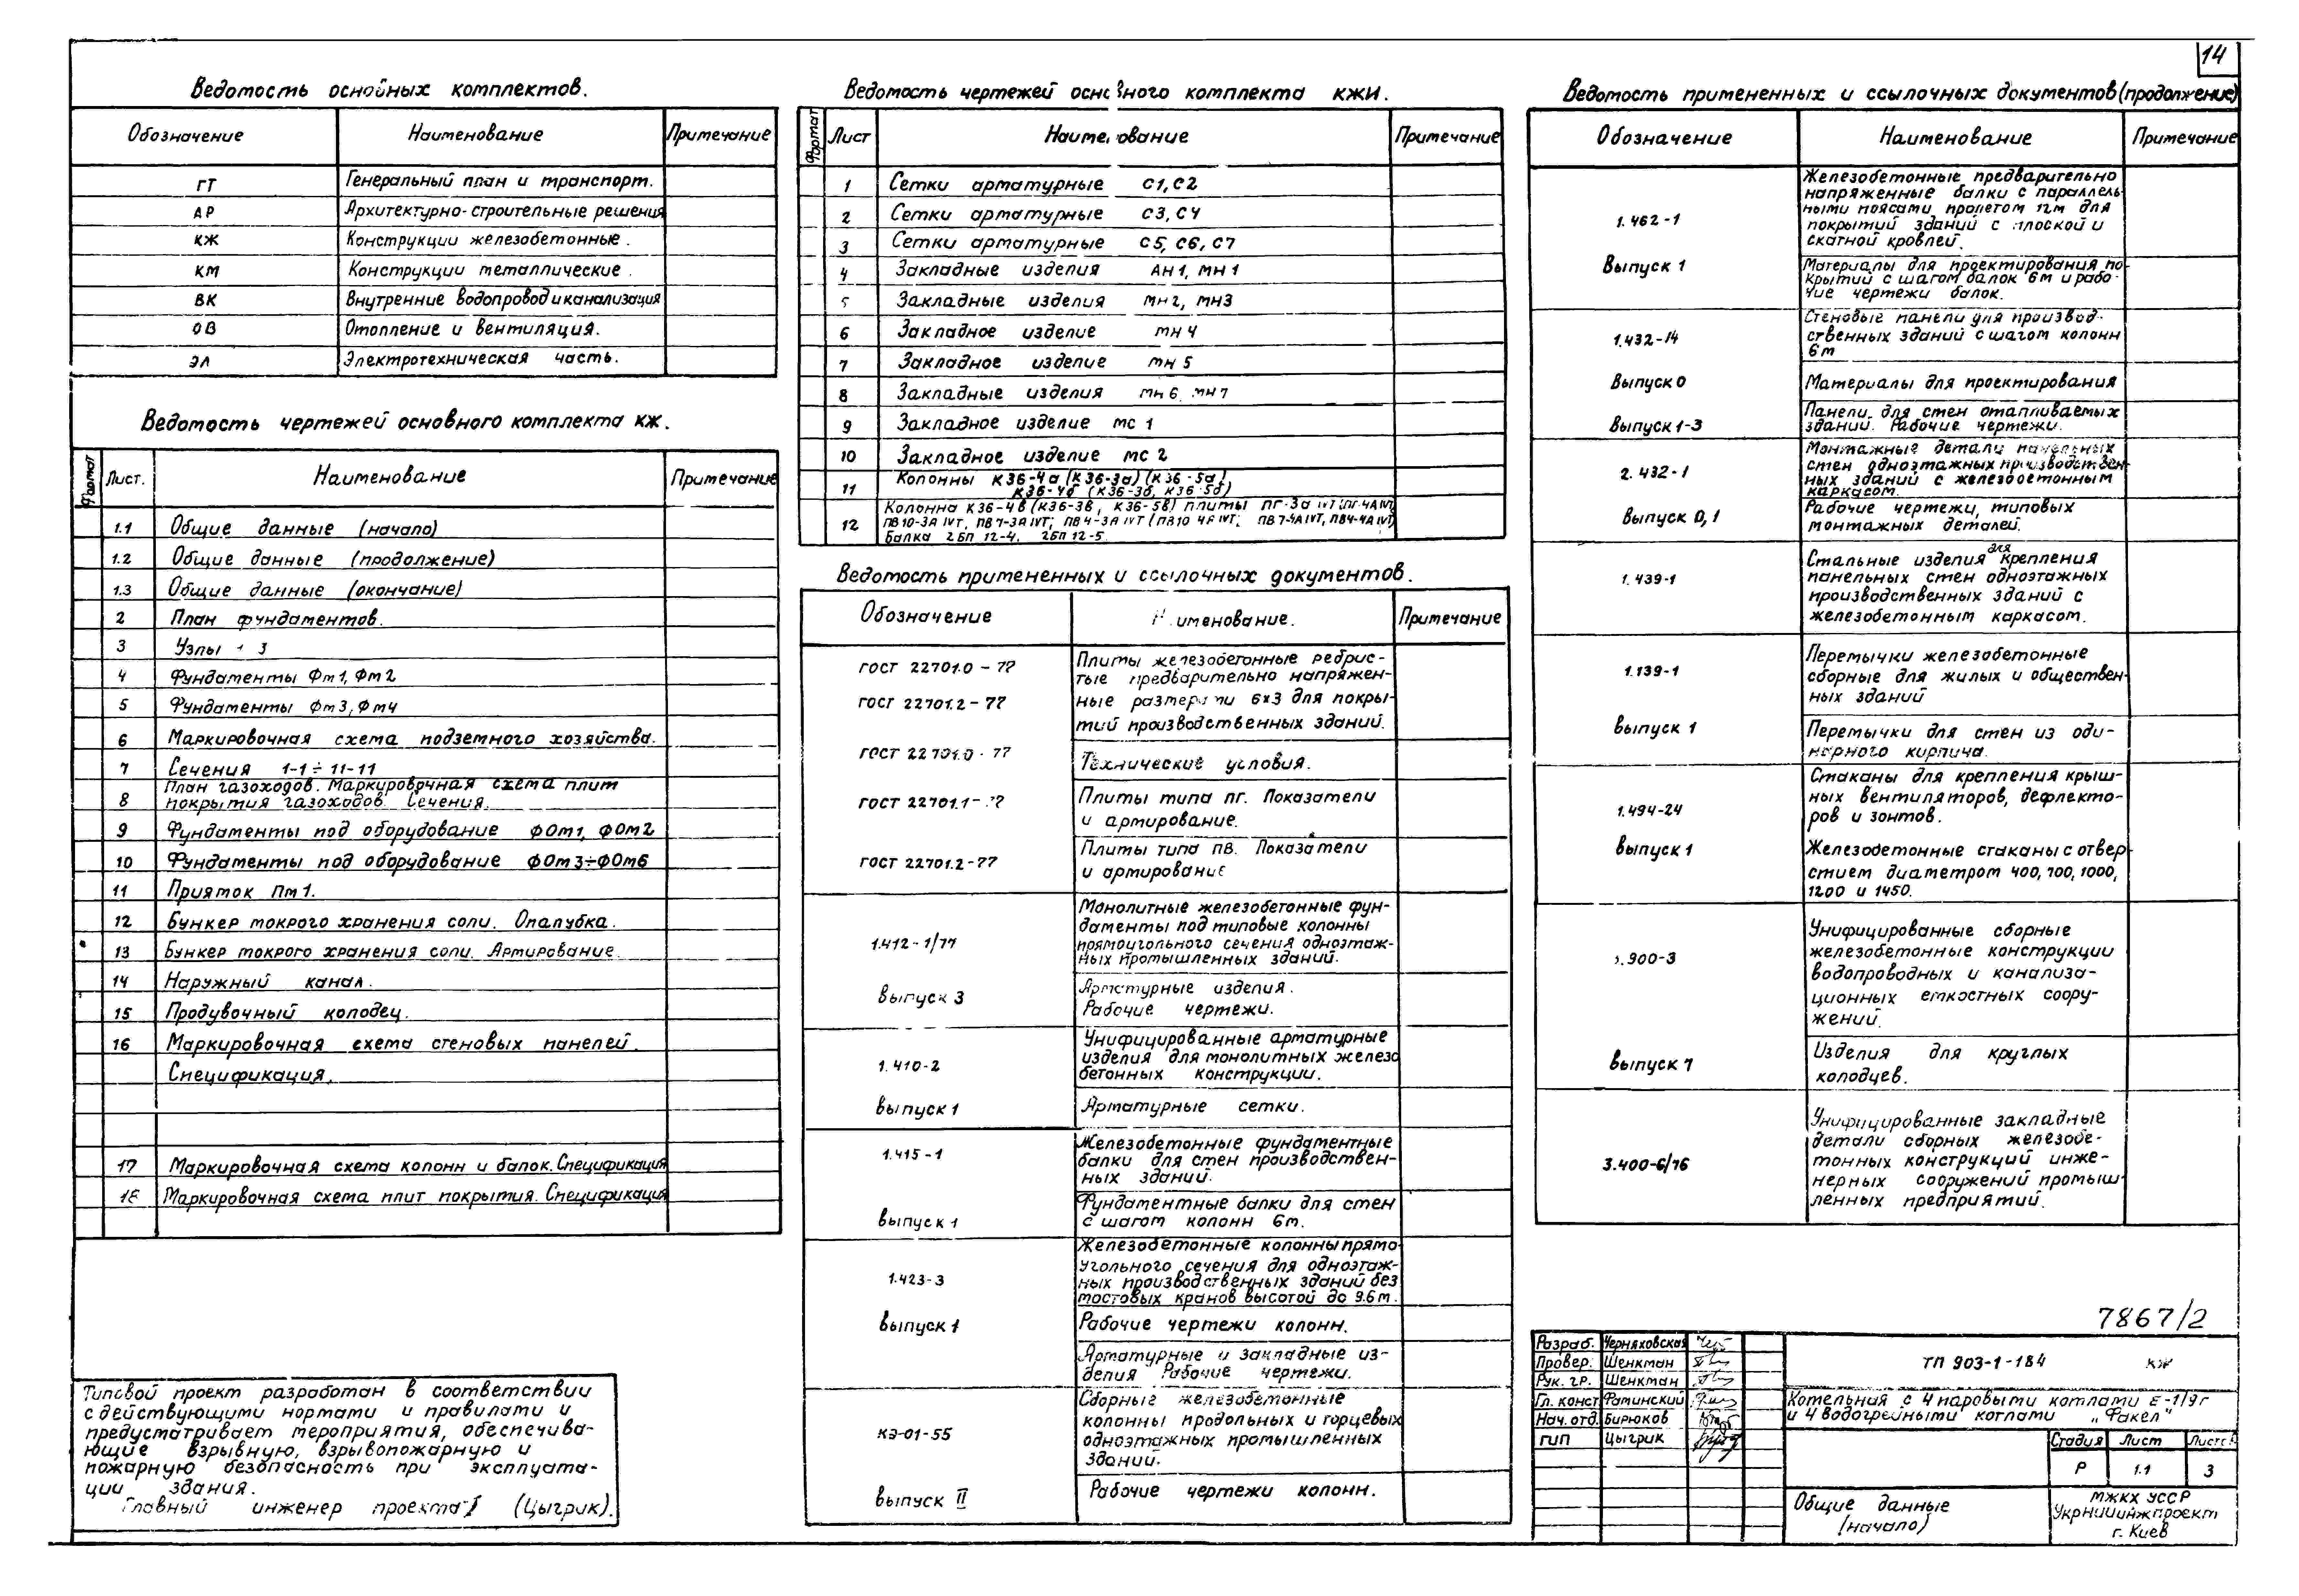 14
Ведомость основных комплектов.
Обозначение Наименование Примечание
ГТ Генеральный план и транспорт.
АР Архитектурно-строительные решения
КЖ Конструкции железобетонные.
КМ Конструкции металлические.
ВК Внутренние водопровод и канализация
ОВ Отопление и вентиляция.
ЭЛ Электротехническая часть.
Ведомость чертежей основного комплекта КЖ.
Формат Лист. Наименование Примечание
1.1 Общие данные (начало)
1.2 Общие данные (продолжение)
1.3 Общие данные (окончание)
2 План фундаментов.
3 Узлы 1 3
4 Фундаменты Фм1, Фм2
5 Фундаменты Фм3, Фм4
6 Маркировочная схема подземного хозяйства.
7 Сечения 1-1÷11-11
8 План газоходов. Маркировочная схема плит
покрытия газоходов. Сечения.
9 Фундаменты под оборудование ФОм1, ФОм2
10 Фундаменты под оборудование ФОм3÷ФОм6
11 Приямок Пм1.
12 Бункер мокрого хранения соли. Опалубка.
13 Бункер мокрого хранения соли. Армирование.
14 Наружный канал.
15 Продувочный колодец.
16 Маркировочная схема стеновых панелей.
Спецификация.
17 Маркировочная схема колонн и балок. Спецификация
18 Маркировочная схема плит покрытия. Спецификация
Типовой проект разработан в соответствии
с действующими нормами и правилами и
предусматривает мероприятия, обеспечива-
ющие взрывную, взрывопожарную и
пожарную безопасность при эксплуата-
ции здания.
Главный инженер проекта (Цыгрик).
Ведомость чертежей основного комплекта КЖИ.
Формат Лист Наименование Примечание
1 Сетки арматурные С1, С2
2 Сетки арматурные С3, С4
3 Сетки арматурные С5, С6, С7
4 Закладные изделия АН1, МН1
5 Закладные изделия МН2, МН3
6 Закладное изделие МН4
7 Закладное изделие МН5
8 Закладные изделия МН6, МН7
9 Закладное изделие МС1
10 Закладное изделие МС2
11 Колонны К36-4а (К36-3а) (К36-5а)
К36-4б (К36-3б, К36-5б)
12 Колонна К36-4в (К36-3в, К36-5в) плиты ПГ-3А IVТ; ПГ-4А IVТ,
ПВ10-3А IVТ, ПВ7-3А IVТ; ПВ4-3А IVТ (ПВ10 4А IVТ; ПВ7-4А IVТ, ПВ4-4А IVТ)
Балка 2БП 12-4, 2БП 12-5.
Ведомость примененных и ссылочных документов.
Обозначение Наименование. Примечание
ГОСТ 22701.0-77 Плиты железобетонные ребрис-
тые предварительно напряжен-
ГОСТ 22701.2-77 ные размерами 6х3 для покры-
тий производственных зданий.
ГОСТ 22701.0-77 Технические условия.
ГОСТ 22701.1-77 Плиты типа ПГ. Показатели
и армирование.
ГОСТ 22701.2-77 Плиты типа ПВ. Показатели
и армирование
1.412-1/77 Монолитные железобетонные фун-
даменты под типовые колонны
прямоугольного сечения одноэтаж-
ных промышленных зданий.
выпуск 3 Арматурные изделия.
Рабочие чертежи.
1.410-2 Унифицированные арматурные
изделия для монолитных железо
бетонных конструкции.
выпуск 1 Арматурные сетки.
1.415-1 Железобетонные фундаментные
балки для стен производствен-
ных зданий.
выпуск 1 Фундаментные балки для стен
с шагом колонн 6м.
1.423-3 Железобетонные колонны прямо
угольного сечения для одноэтаж-
ных производственных зданий без
мостовых кранов высотой до 9.6м.
выпуск 1 Рабочие чертежи колонн.
Арматурные и закладные из-
делия Рабочие чертежи.
КЭ-01-55 Сборные железобетонные
колонны продольных и торцевых
одноэтажных промышленных
зданий.
выпуск II Рабочие чертежи колонн.
Ведомость примененных и ссылочных документов (продолжение)
Обозначение Наименование Примечание
1.462-1 Железобетонные предварительно
напряженные балки с параллель-
ными поясами пролетом 12м для
покрытий зданий с плоской и
скатной кровлей.
Выпуск 1 Материалы для проектирования по-
крытий с шагом балок 6м и рабо-
чие чертежи балок.
1.432-14 Стеновые панели для производ-
ственных зданий с шагом колонн
6м
Выпуск 0 Материалы для проектирования
выпуск 1-3 Панели для стен отапливаемых
зданий. Рабочие чертежи.
2.432-1 Монтажные детали панельных
стен одноэтажных производствен-
ных зданий с железобетонным
каркасом.
выпуск 0,1 Рабочие чертежи, типовых
монтажных деталей.
1.439-1 Стальные изделия для крепления
панельных стен одноэтажных
производственных зданий с
железобетонным каркасом.
1.139-1 Перемычки железобетонные
сборные для жилых и обществен-
ных зданий
выпуск 1 Перемычки для стен из оди-
нарного кирпича.
1.494-24 Стаканы для крепления крыш-
ных вентиляторов, дефлекто-
ров и зонтов.
выпуск 1 Железобетонные стаканы с отвер-
стием диаметром 400, 700, 1000,
1200 и 1450.
.900-3 Унифицированные сборные
железобетонные конструкции
водопроводных и канализа-
ционных емкостных соору-
жений.
выпуск 7 Изделия для круглых
колодцев.
3.400-6/76 Унифицированные закладные
детали сборных железобе-
тонных конструкций инже-
нерных сооружений промыш-
ленных предприятий.
7867/2
Разраб. Черняховская
Провер. Шенкман
Рук. гр. Шенкман
Гл. конст. Фаминский
Нач. отд. Бирюков
ГИП Цыгрик
ТП 903-1-184 КЖ
Котельная с 4 паровыми котлами Е-1/9г
и 4 водогрейными котлами „Факел"
Стадия Лист Листов
Р 1.1 3
Общие данные
(начало)
МЖКХ УССР
Укрниинжпроект
г. Киев